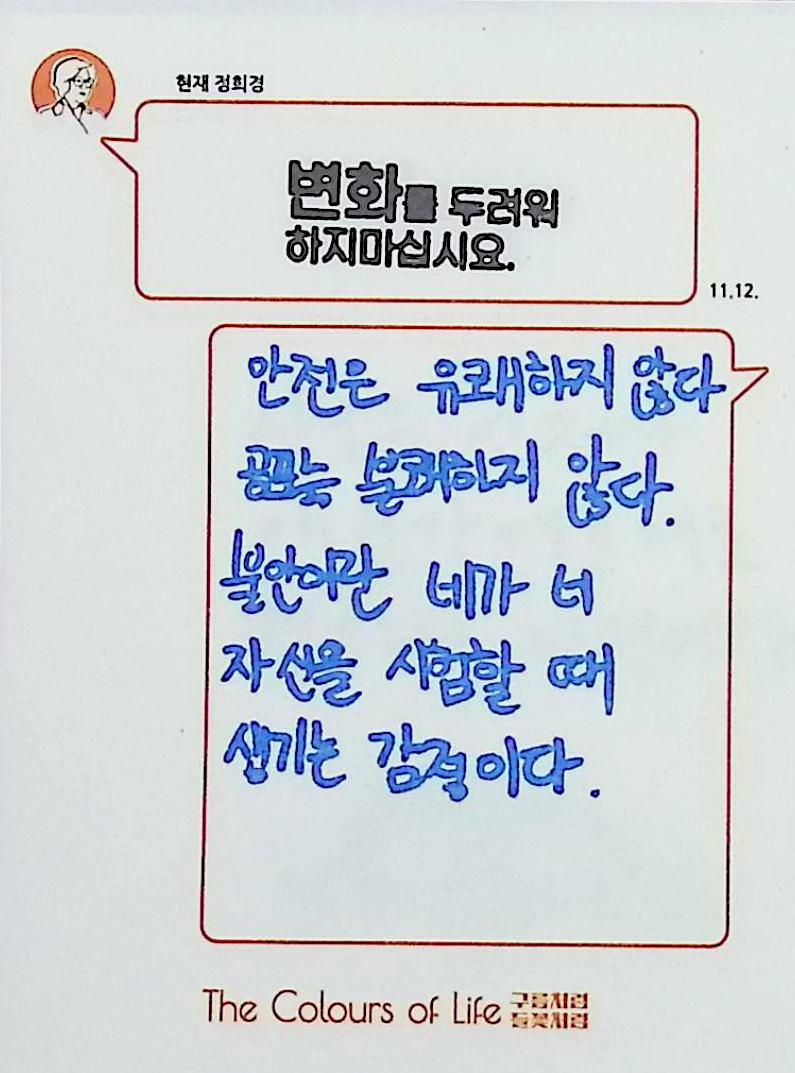 현재 정희경
변화를 두려워
하지마십시요.
11.12.
안전은 유쾌하지 않다
공포는 불쾌하지 않다.
불안이란 네가 너
자신을 시험할 때
생기는 감정이다.
The Colours of Life 구름처럼
들꽃처럼